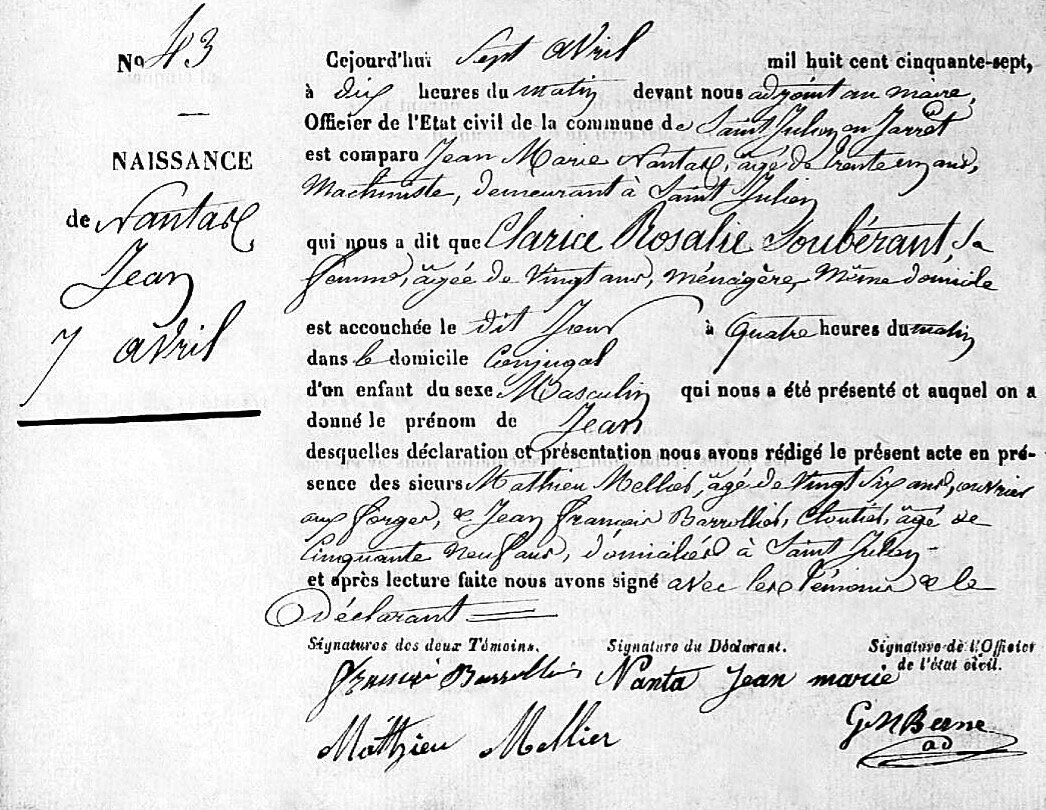 No 43
NAISSANCE
de Nantas
Jean
7 avril
Cejourd'hui Sept avril mil huit cent cinquante-sept,
à dix heures du matin devant nous adjoint au maire,
Officier de l'Etat civil de la commune de Saint Julien en Jarrêt
est comparu Jean Marie Nantas, âgé de trente un ans,
Machiniste, demeurant à Saint Julien
qui nous a dit que Clarice Rosalie Soubérant, sa
femme, âgée de vingt ans, ménagère, même domicile
est accouchée le dit Jour à quatre heures du matin
dans le domicile Conjugal
d'un enfant du sexe Masculin qui nous a été présenté et auquel on a
donné le prénom de Jean
desquelles déclaration et présentation nous avons rédigé le présent acte en pré-
sence des sieurs Mathieu Mellier, âgé de vingt six ans, ouvrier
aux forges, & Jean François Barrollier, Cloutier, âgé de
Cinquante neuf ans, domiciliés à Saint Julien -
et après lecture faite nous avons signé avec les témoins & le
Déclarant
Signatures des deux Témoins. Signature du Déclarant. Signature de l'Officier
de l'état civil.
Barrollier Nanta Jean marie
G M Berne
ad
Mathieu Mellier